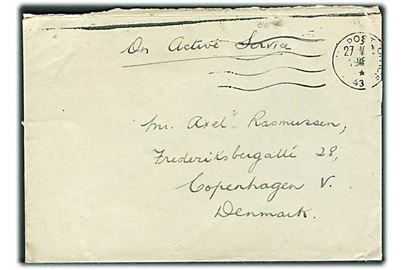 On Active Service
POST OFFICE
27 V
43
Mr. Axel Rasmussen,
Frederiksbergallé 28,
Copenhagen V.
Denmark.